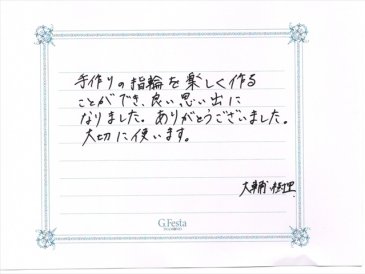 手作りの指輪を楽しく作る
ことができ、良い思い出に
なりました。ありがとうございました。
大切に使います。
大輔
G.Festa